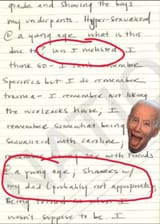 grade and showing the boys
my underpants. Hyper-sexualized
@ a young age. what is this
due to? Was I molested. I
think so - I can't remember
specifics but I do remember
trauma - I remember not liking
the woolzacks house, I
remember somewhat being
sexualized with caroline,
remember having sex with friends
@ a young age; showers w/
my dad (probably not appropriate).
Being turned on when I
wasn't suppose to be. I